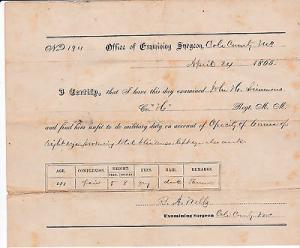 No 1911 Office of Examining Surgeon, Cole County, Mo
April 24 186
I Certify, that I have this day examined John H. Simmons
Co. "H" Regt. M. M.
and find him unfit to do military duty on account of Opacity of cornea of
right eye producing total blindness of
AGE. COMPLEXION. HEIGHT. FEET. INCHES. EYES. HAIR. REMARKS.
fair 5 8 dark Farmer
Examining Surgeon Cole County, Mo